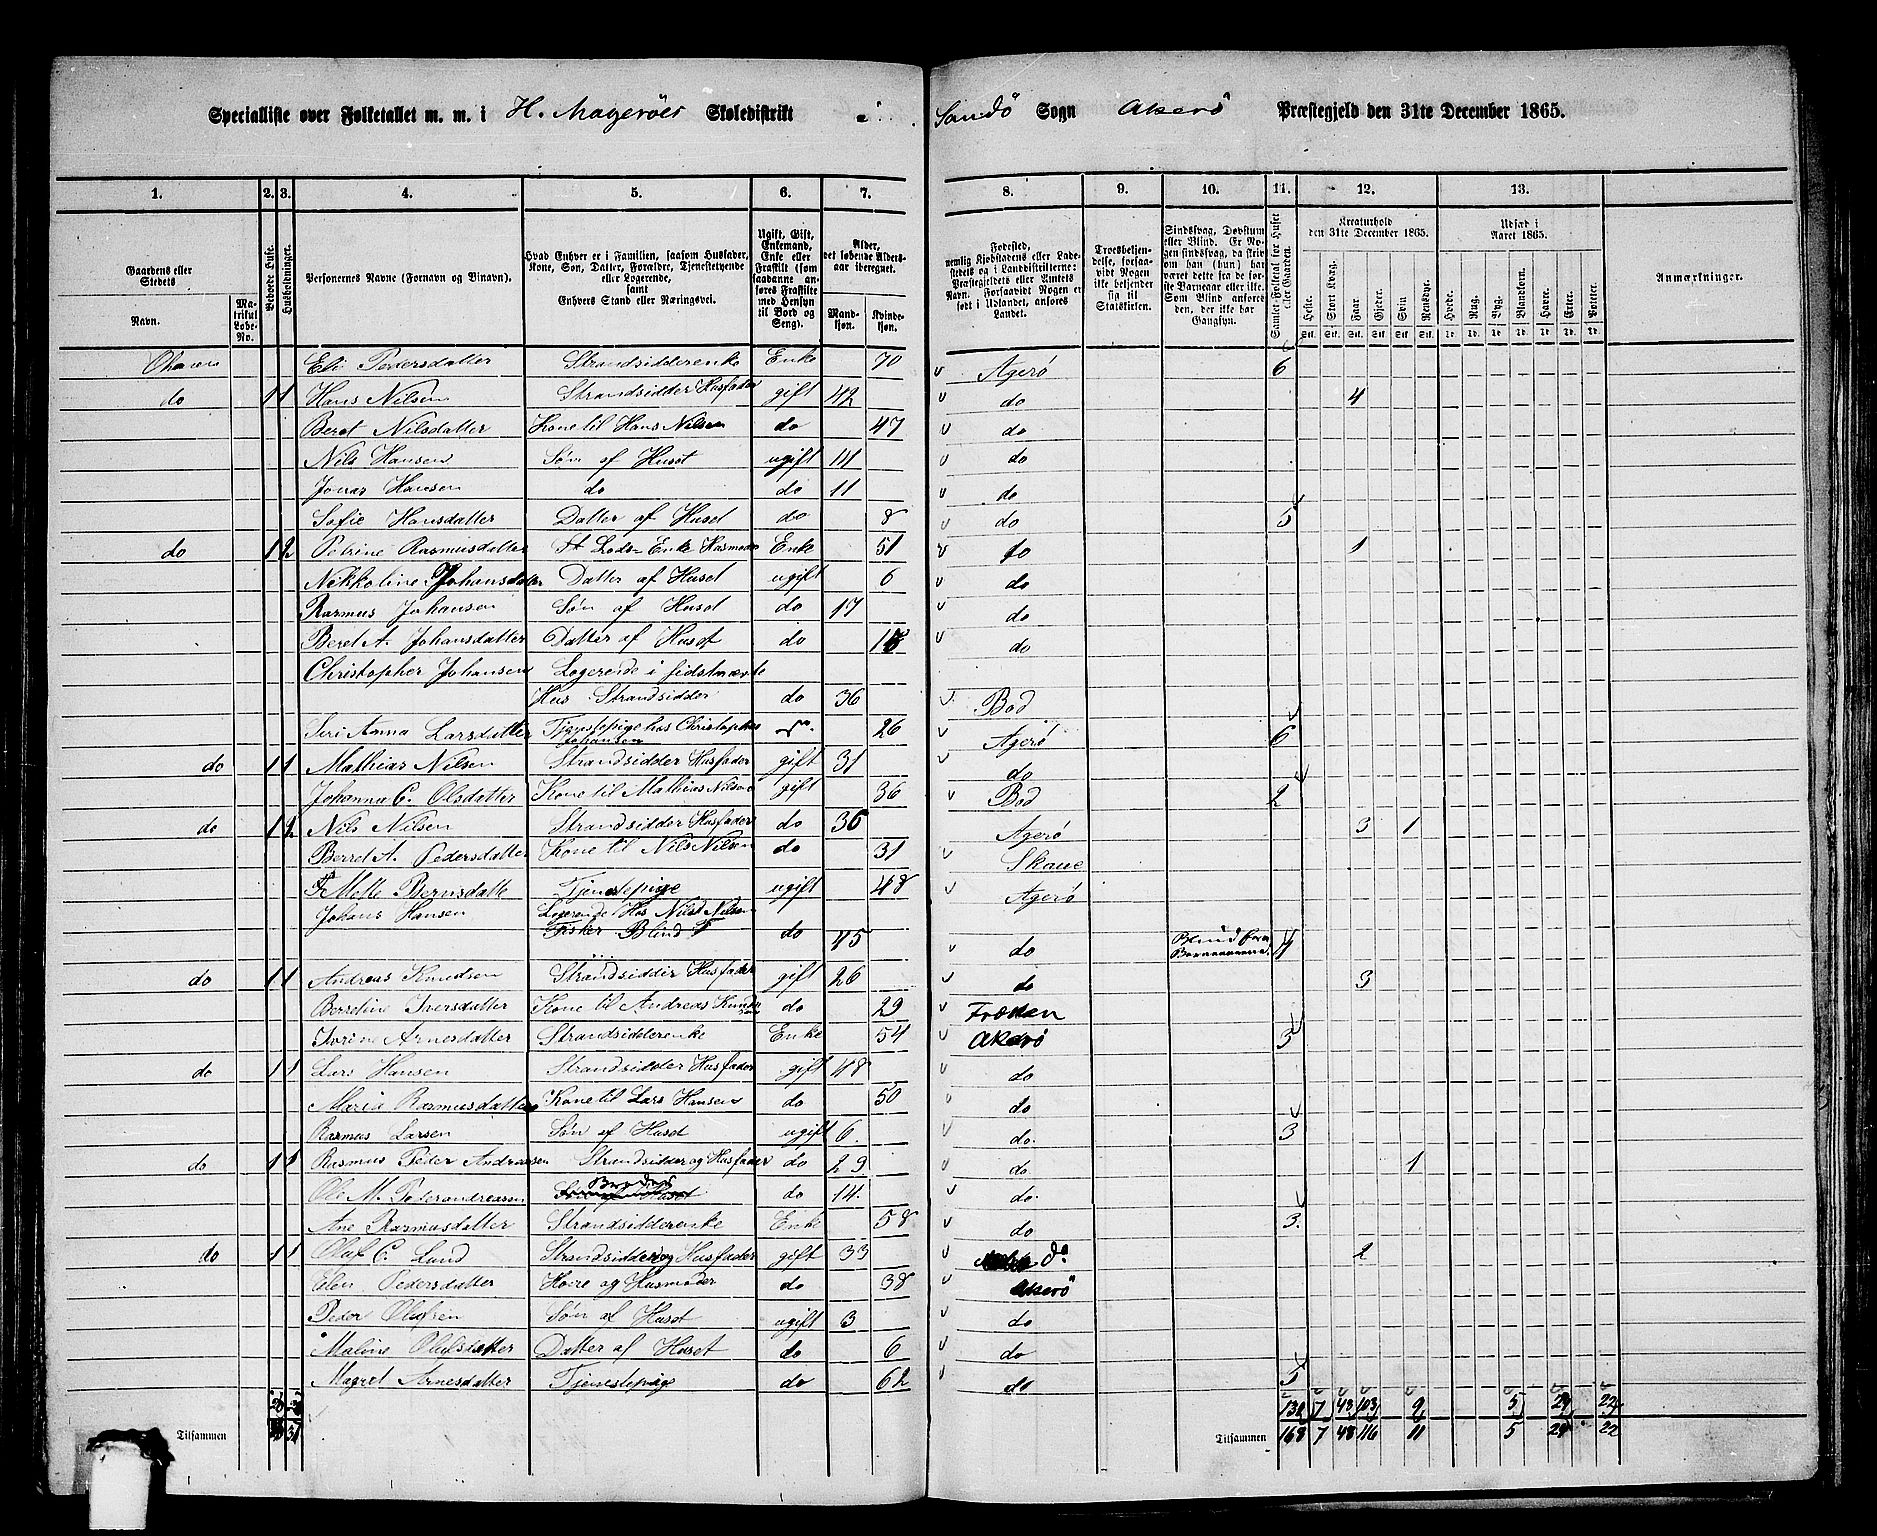 Specialliste over Folketallet m. m. i H. Magerøes Skoledistrikt i Sandö Sogn Akerö Præstegjeld den 31te December 1865.
1. 2. 3. 4. 5. 6. 7. 8. 9. 10. 11. 12. 13.
Gaardens eller Stedets
Navn.
Matrikul Løbe-No.
Beboede Huse.
Husholdninger.
Personernes Navne (Fornavn og Tilnavn).
Hvad Enhver er i Familien, saasom Husfader, Kone, Søn, Datter, Forældre, Tjenestetyende eller Logerende, samt Enhvers Stand eller Næringsvei.
Ugift, Gift, Enkemand, Enke eller Fraskilt (som saadanne anføres Fraskilte med Hensyn til Bord og Seng).
Alder, det løbende Aldersaar iberegnet.
Mandkjøn. Kvindekjøn.
Fødested, nemlig Kjøbstadens eller Ladestedets og i Landdistrikterne: Præstegjeldets eller Amtets Navn. Forsaavidt Nogen er født i Udlandet, anføres Landet.
Troesbekjendelse, forsaavidt Nogen ikke bekjender sig til Statskirken.
Sindssvag, Døvstum eller Blind. Er Nogen sindssvag, da skrives om han (hun) har været dette fra de første Barneaar eller ikke. Som Blind anføres den, der ikke har Gangsyn.
Samlet Folketal for Huset eller Gaarden.
Kreaturhold den 31te December 1865.
Heste. Stort Kvæg. Faar. Gjeder. Svin. Rensdyr.
Udsæd i Aaret 1865.
Hvede. Rug. Byg. Blandkorn. Havre. Erter. Poteter.
Anmærkninger.
Eli Pedersdatter Strandsidderenke Enke 70 Agerø 6
do 1 1 Hans Nilsen Strandsidder Husfader gift 42 do 4
Beret Nilsdatter Kone til Hans Nilsen do 47 do
Nils Hansen Søn af Huset ugift 14 do
Jonas Hansen do do 11 do
Sofie Hansdatter Datter af Huset do 8 do 5
do 1 2 Petrine Rasmusdatter Enke Husmoder Enke 51 do 1
Nikkoline Johansdatter Datter af Huset ugift 6 do
Rasmus Johansen Søn af Huset do 17 do
Beret A. Johansdatter Datter af Huset do do
Christopher Johansen Logerende i sidstnævnte
Hus Strandsidder do 36 Bod
Siri Anna Larsdatter Tjenstepige hos Christopher Johansen 26 Agerø 6
do 1 1 Mathias Nilsen Strandsidder Husfader gift 31 do
Johanna C. Olsdatter Kone til Mathias Nilsen gift 36 Bod 2
do 1 2 Nils Nilsen Strandsidder Husfader do 36 Agerø 3 1
Berret A. Pedersdatter Kone til Nils Nilsen do 31 Skaue
Bernsdatte Tjenestepige ugift 48 Agerø
Johans Hansen Logerende Hos Nils Nilsen
Fisker Blind do 45 do Blind fra 4
do 1 1 Andreas Knudsen Strandsidder Husfader gift 26 do 3
Berretine Iversdatter Kone til Andreas Knudsen do 29 Fræden
Arnesdatter Strandsidderenke Enke 54 Akerø 3
do 1 1 Lars Hansen Strandsidder Husfader gift 48 do
Maria Rasmusdatter Kone til Lars Hansen do 50 do
Rasmus Larsen Søn af Huset ugift 6. do. 3
do 1 1 Rasmus Peder Andreasen Strandsidder og Husfader do 29 do 1
Ole M. Peterandreassen Broder do 14. do.
Ane Rasmusdatter Strandsidderenke Enke 58 do 3.
do 1 1 Oluf C. Lund Strandsidder og Husfader gift 33 do 2
Elen Pedersdatter Kone og Husmoder do 38 Akerø
Peder Olufsen Søn af Huset ugift 3 do
Maline Olufsdatter Datter af Huset do 6 do
Magret Arnesdatter Tjenestepige do 62 do 5
7 43 103 9 5 29 22
Tilsammen 31 Tilsammen 168 7 48 116 11 5 29 22